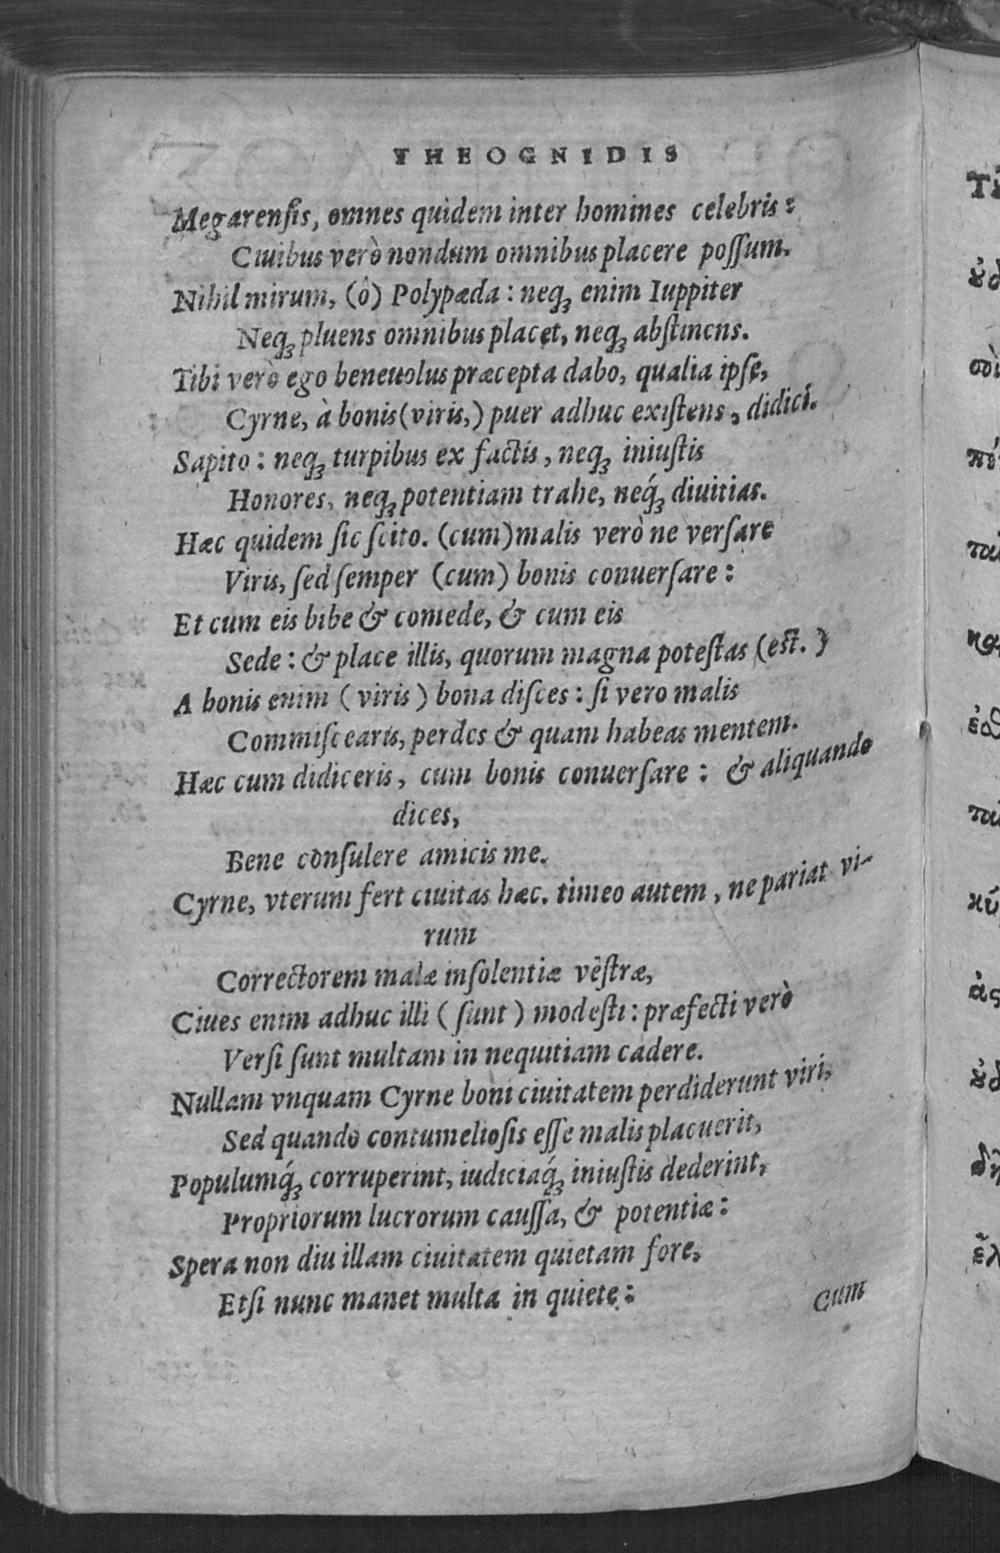 THEOGNIDIS
Megarenſis, omnes quidem inter homines celebris:
Ciuibus verò nondum omnibus placere poſſum.
Nihil mirum, (ô) Polypæda: neq; enim Iuppiter
Neq; pluens omnibus placet, neq; abſtinens.
Tibi verò ego beneuolus præcepta dabo, qualia ipſe,
Cyrne, à bonis (viris,) puer adhuc exiſtens, didici.
Sapito: neq; turpibus ex factis, neq; iniuſtis
Honores, neq; potentiam trahe, neq́; diuitias.
Hæc quidem ſic ſcito. (cum) malis verò ne verſare
Viris, ſed ſemper (cum) bonis conuerſare:
Et cum eis bibe & comede, & cum eis
Sede: & place illis, quorum magna poteſtas (eſt.)
A bonis enim (viris) bona diſces: ſi vero malis
Commiſcearis, perdes & quam habeas mentem.
Hæc cum didiceris, cum bonis conuerſare: & aliquando
dices,
Bene conſulere amicis me.
Cyrne, vterum fert ciuitas hæc. timeo autem, ne pariat vi-
rum
Correctorem malæ inſolentiæ veſtræ,
Ciues enim adhuc illi (ſunt) modeſti: præfecti verò
Verſi ſunt multam in nequitiam cadere.
Nullam vnquam Cyrne boni ciuitatem perdiderunt viri,
Sed quando contumelioſis eſſe malis placuerit,
Populumq́; corruperint, iudiciaq́; iniuſtis dederint,
Propriorum lucrorum cauſſa, & potentiæ:
Spera non diu illam ciuitatem quietam fore,
Etſi nunc manet multa in quiete:
Cum